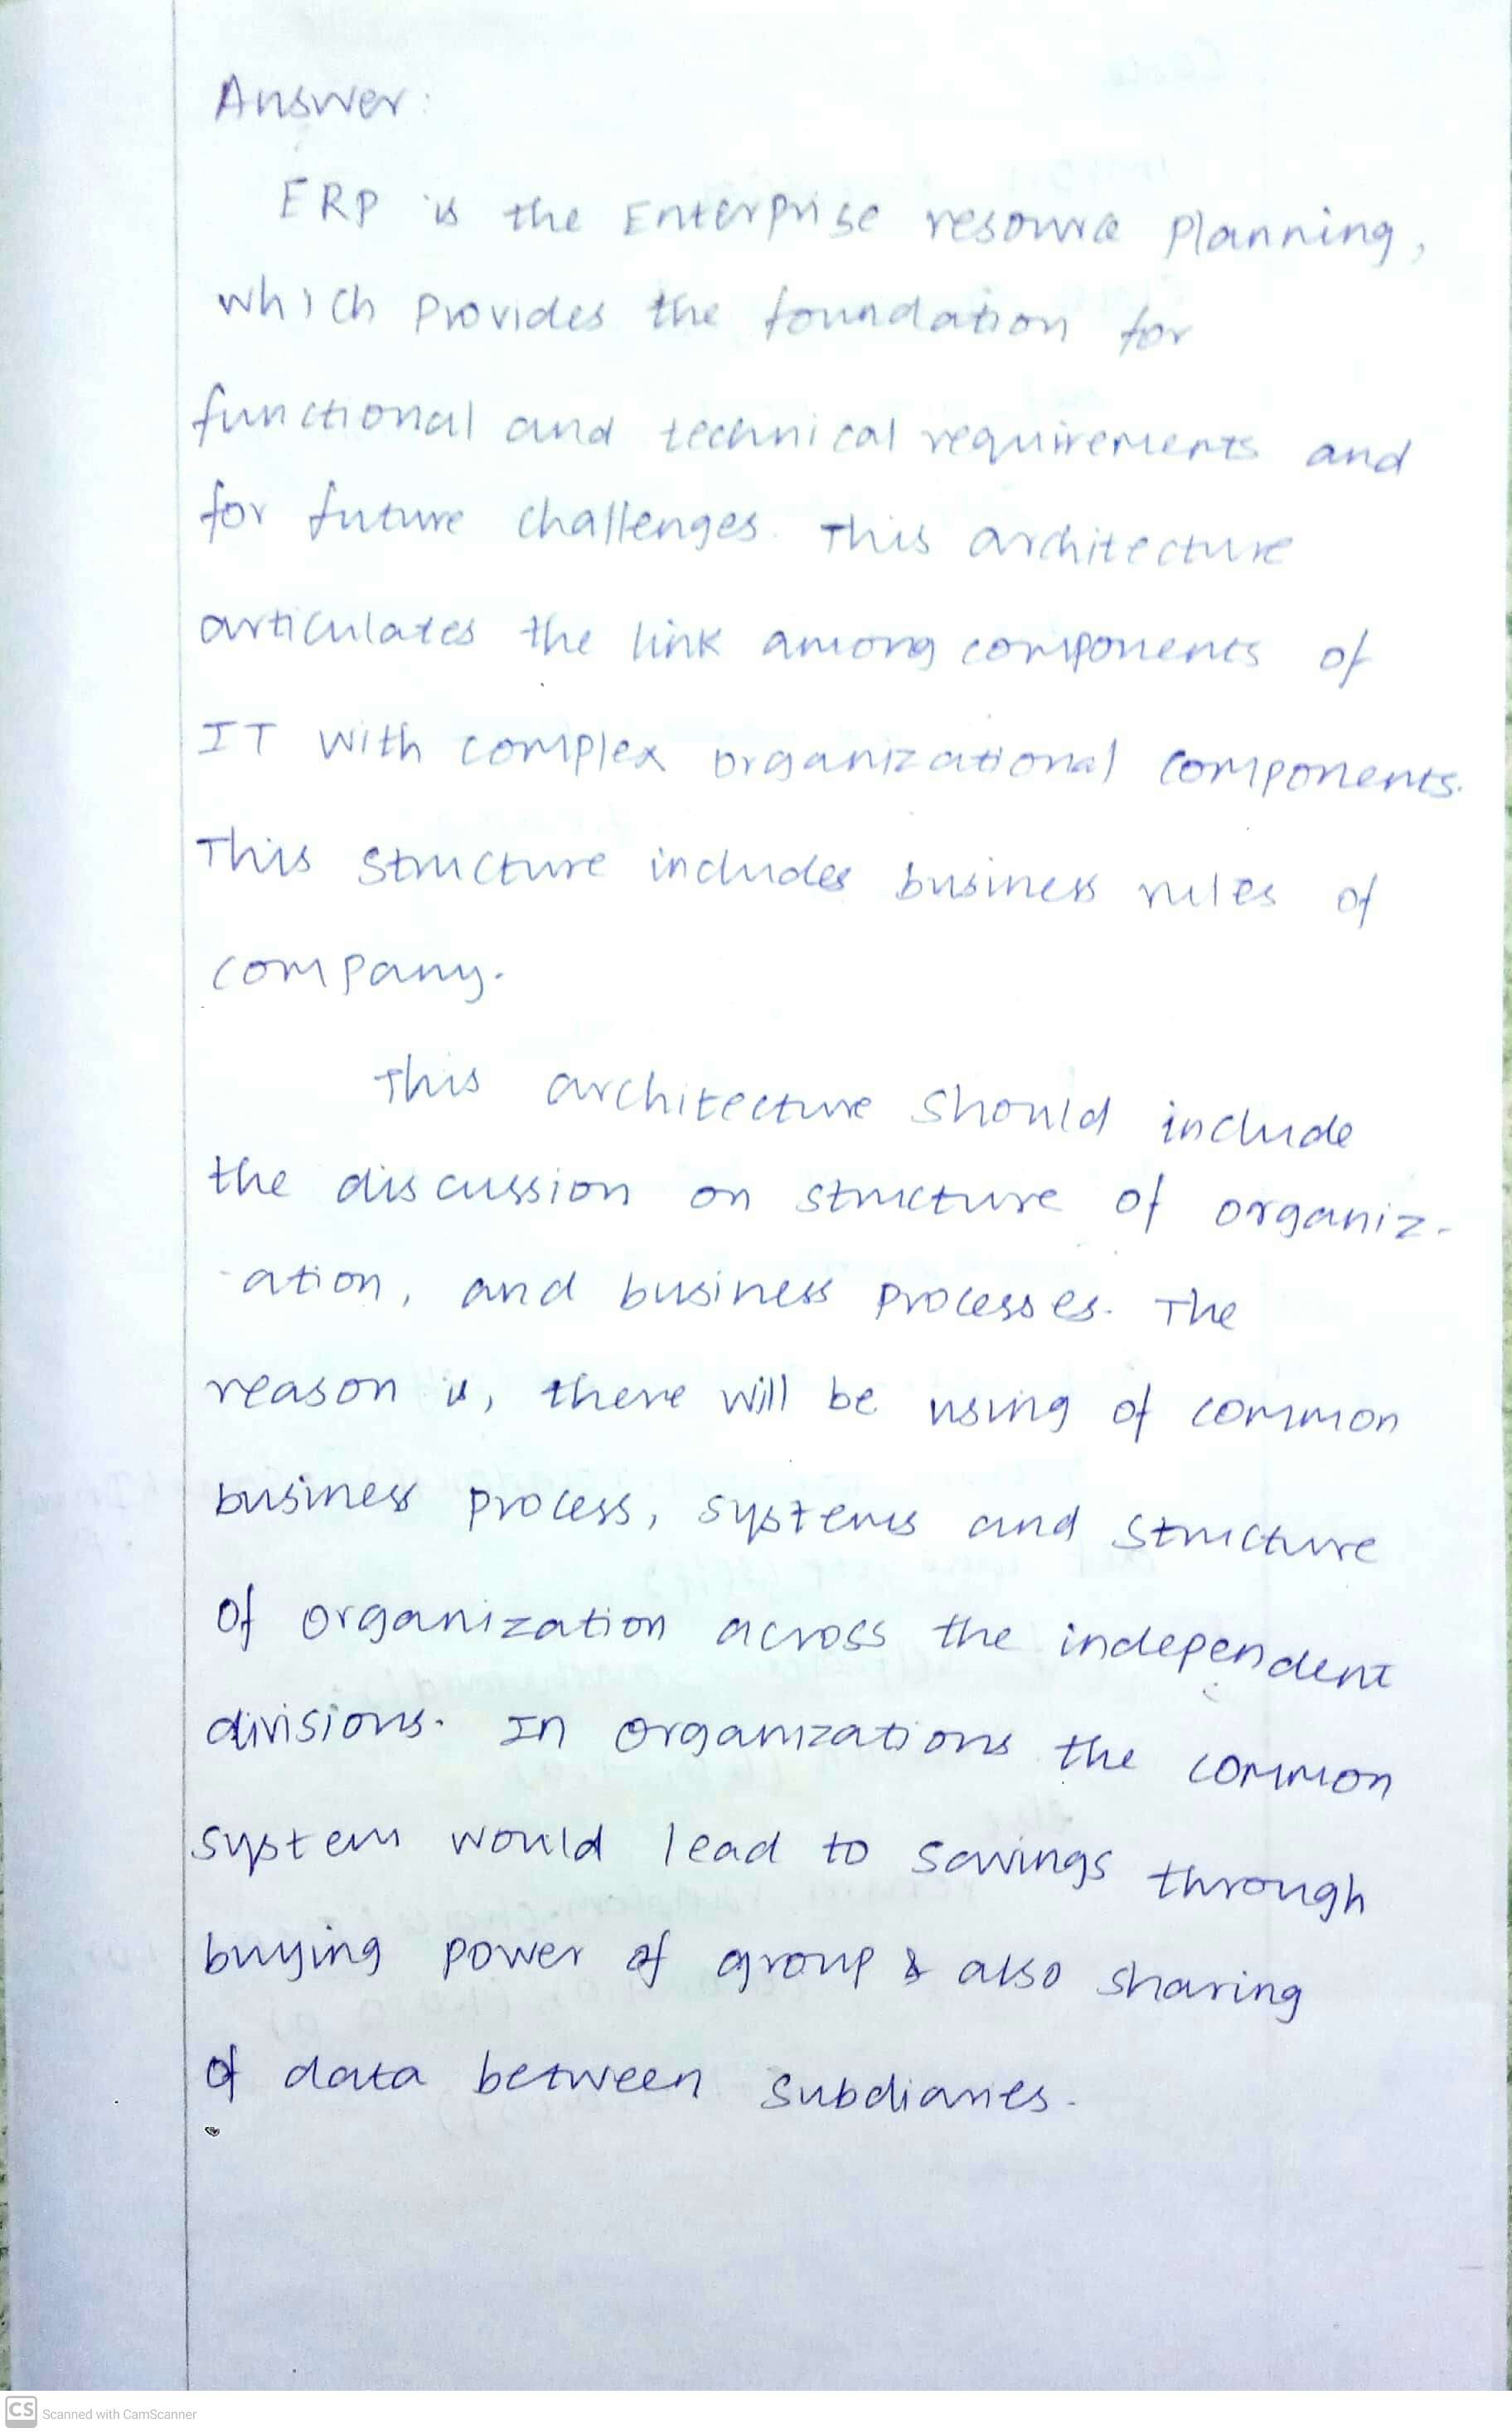 Answer:
ERP is the Enterprise resource Planning,
which provides the foundation for
functional and technical requirements and
for future challenges. This architecture
articulates the link among components of
IT with complex organizational components.
This structure includes business rules of
company.
This architecture should include
the discussion on structure of organiz-
-ation, and business processes. The
reason is, there will be using of common
business process, systems and structure
of organization across the independent
divisions. In organizations the common
system would lead to savings through
buying power of group & also sharing
of data between subdiaries.
CS Scanned with CamScanner